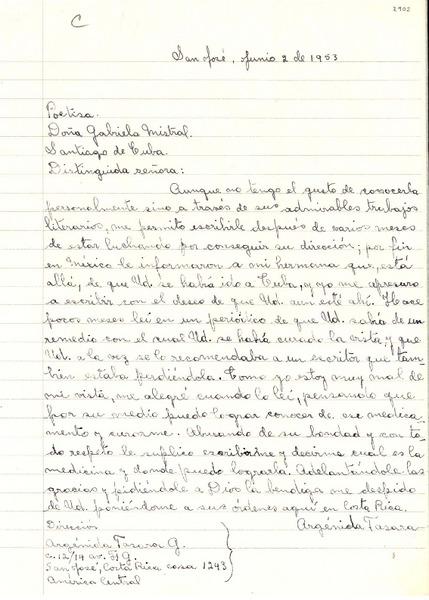 C
2902
San José, Junio 2 de 1953
Poetisa.
Doña Gabriela Mistral.
Santiago de Cuba.
Distinguida señora:
Aunque no tengo el gusto de conocerla
personalmente sino a través de sus admirables trabajos
literarios, me permito escribirle después de varios meses
de estar luchando por conseguir su dirección; por fin
en México le informaron a mi hermana que está
allá, de que Ud. se había ido a Cuba, y yo me apresuro
a escribir con el deseo de que Ud. aun esté ahí. Hace
pocos meses leí en un periódico de que Ud. sabía de un
remedio con el cual Ud. se había curado la vista, y que
Ud. a la vez se lo recomendaba a un escritor que tam-
bién estaba perdiéndola. Como yo estoy muy mal de
mi vista, me alegré cuando lo leí, pensando que
por su medio puedo lograr conocer de ese medica-
mento y curarme. Abusando de su bondad y con to-
do respeto le suplico escribirme y decirme cual es la
medicina y donde puedo lograrla. Adelantándole las
gracias y pidiéndole a Dios la bendiga me despido
de Ud. poniéndome a sus órdenes aquí en Costa Rica.
Argénida Tasara
Dirección
Argénida Tasara G.
c. 12/14 av. 
San José, Costa Rica casa 1243
América Central